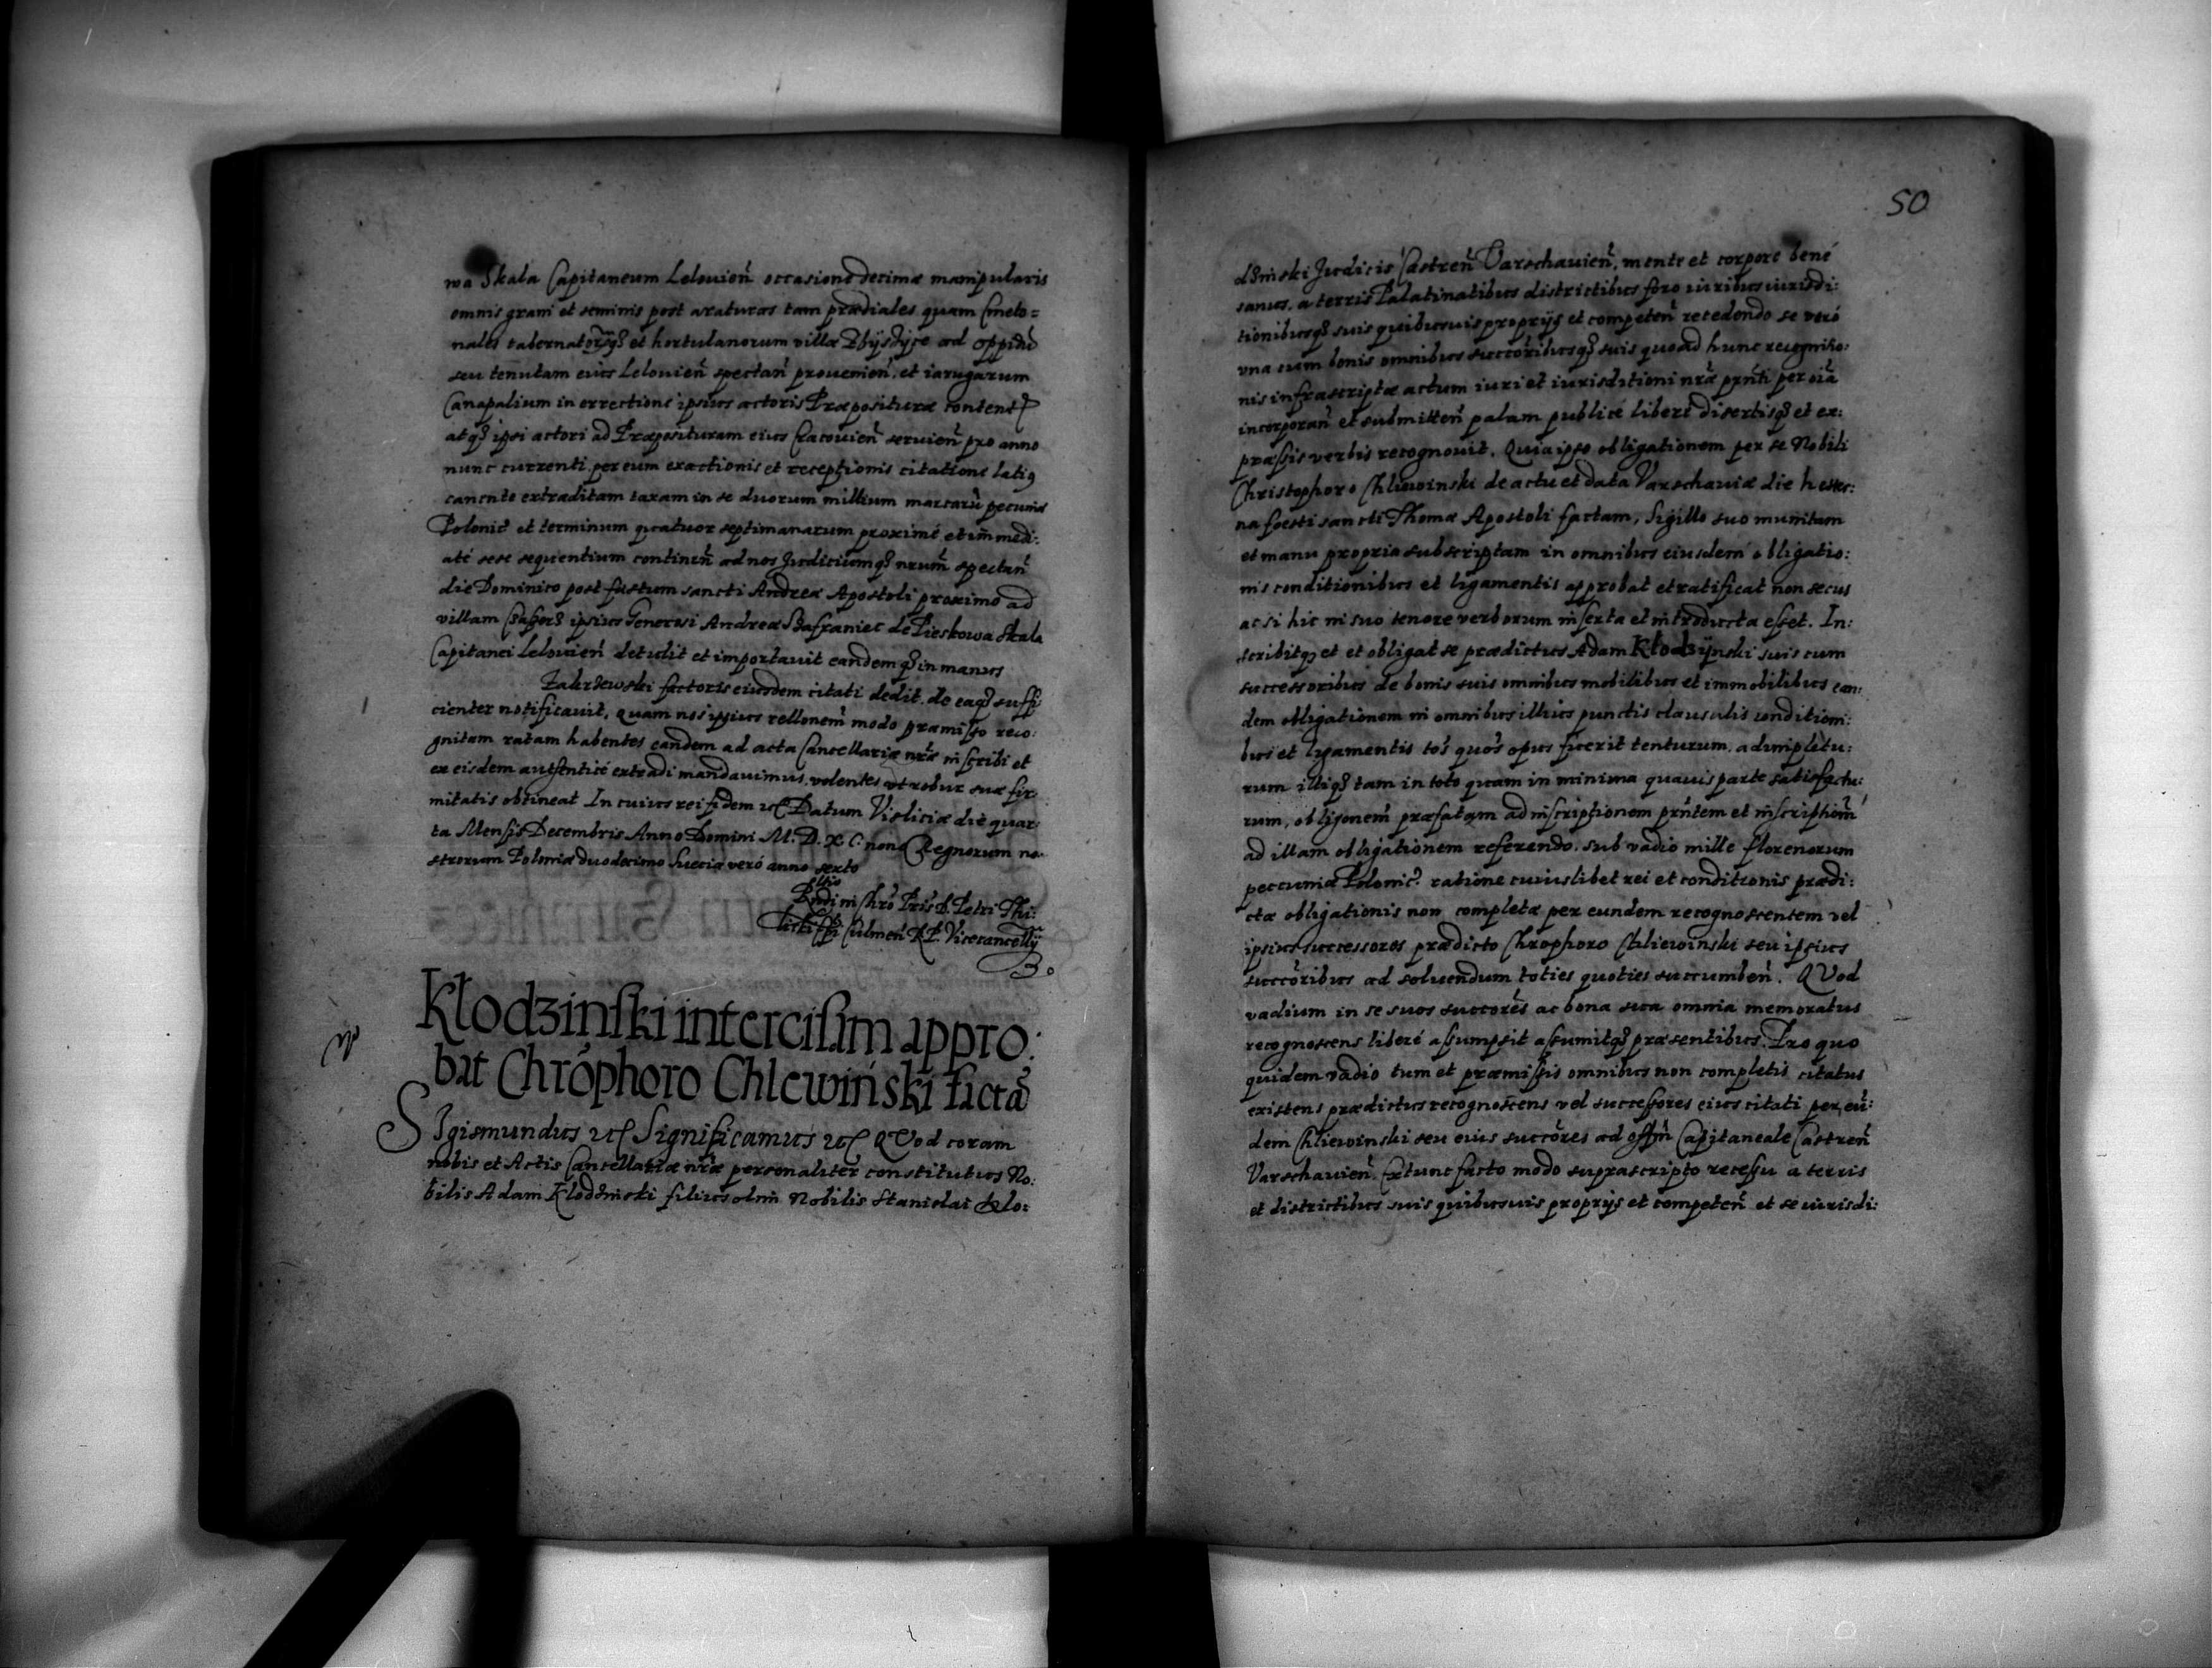 wa Skala Capitaneum Lelouień occasione decimæ manipularis
omnis grani et seminis post araturas tam prædiales quam Cmeto=
nales tabernatorũq₃ et hortulanorum villæ ad oppidũ
seu tenutam eius Lelouień spectań prouenień. et iarugarum
Canapalium in errectione ipsius actoris Præposituræ content
atq₃ ipsi actori ad Præposituram eius Cracouień seruień pro anno
nunc currenti per eum exactionis et receptionis citatione latiq
canente extraditam taxam in se duorum millium marcarũ pecuniæ
Polonic et terminum quatuor septimanarum proximé et im̃medi:
até sese sequentium continẽn ad nos Judiciumq₃ nrum̃ spectań
die Dominico post festum sancti Andreæ Apostoli proximo ad
villam ipsius Generosi Andreæ Szafraniec de Pieskowa Skala
Capitanei Lelouień detulit et importauit eandem q₃ in manus
Zakrzewski factoris eiusdem citati dedit. de eaq₃ suffi
cienter notificauit, quam nos ipsius rellonem̃ modo præmisso reco:
gnitam ratam habentes eandem ad acta Cancellariæ nrã inscribi et
ex eisdem autenticé extradi mandauimus, volentes vt robur suæ fir
mitatis obtineat In cuius rei fidem etc Datum Visliciæ die quar
ta Mensis Decembris Anno Domini M. D. X C. nono Regnorum no
strorum Poloniæ duodecimo Sueciæ veró anno sexto
Rndi in Chrõ Pris D. Petri Thi:
Culmeń R P. Vicecancellÿ
Kłodzinski intercisam appro:
bat Chrõphoro Chlewiński factã
SIgismundus etc Significamus etc QVod coram
nobis et Actis Cancellariæ nrã personaliter constitutus No:
bilis Adam Klodzinski filius olim Nobilis Stanislai Klo:
50
dzinski Judicis Castreń Varschauień, mente et corpore bené
sanus, a terris Palatinatibus districtibus foro iuribus iurisdi:
tionibusq₃ suis quibusuis proprijs et competeń recedendo se veró
vna cum bonis omnibus succõribusq₃ suis quoad hunc recognitio:
nis infrascriptæ actum iuri et iurisditioni nrã prñti per oĩa
incorporań et submitteń palam publicé liberé disertisq₃ et ex:
præssis verbis recognouit. Quia ipse obligationem per se Nobili
Christophoro Chliewinski de actu et data Varschauiæ die hester:
na foesti sancti Thomæ Apostoli factam, Sigillo suo munitam
et manu propria subscriptam in omnibus eiusdem obligatio:
nis conditionibus et ligamentis approbat et ratificat non secus
ac si hic in suo tenore verborum inserta et introducta esset. In:
scribitq₃ et et obligat se prædictus Adam Kłodzÿnski suis cum
successoribus de bonis suis omnibus mobilibus et immobilibus ean:
dem obligationem in omnibus illius punctis clausulis conditioni:
bus et ligamentis tos̃ quos̃ opus fuerit tenturum, adimpletu:
rum illiq₃ tam in toto quam in minima quauis parte satisfactu:
rum, obligonem̃ præfatam ad inscriptionem prñtem et inscriptionem̃
ad illam obligationem referendo. sub vadio mille florenorum
peccuniæ Polonic. ratione cuiuslibet rei et conditionis prædi:
ctæ obligationis non completæ per eundem recognoscentem vel
ipsius successores prædicto Chrophoro Chliewinski seu ipsius
succõribus ad soluendum toties quoties succumbeń. QVod
vadium in se suos succorẽs ac bona sua omnia memoratus
recognoscens liberé assumpsit assumitq₃ præsentibus. Pro quo
quidem vadio tum et præmissis omnibus non completis citatus
existens prædictus recognoscens vel successores eius citati per eũ:
dem Chliewinski seu eius succõres ad offm̃ Capitaneale Castreń
Varschauień. Extunc facto modo suprascripto recessu a terris
et districtibus suis quibusuis proprijs et competeń et se iurisdi: